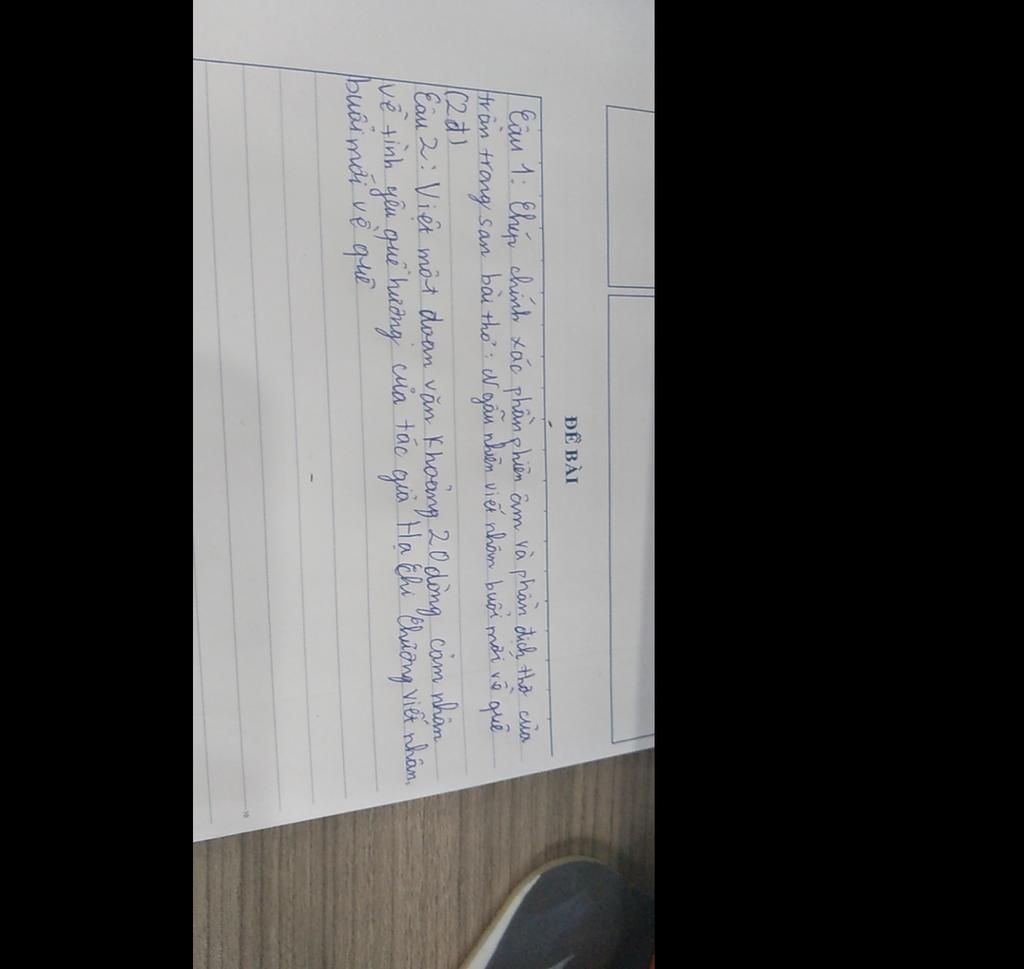 ĐỀ BÀI
Câu 1: Chép chính xác phần phiên âm và phần dịch thơ của
trần trong san bài thơ: Ngẫu nhiên viết nhân buổi mới về quê
(2đ)
Câu 2: Viết một đoạn văn khoảng 20 dòng cảm nhận
về tình yêu quê hương của tác giả Hạ Chi Chương viết nhân
buổi mới về quê